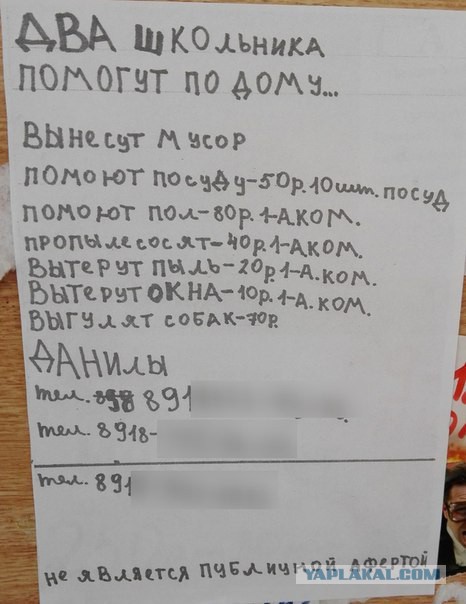 ДВА ШКОЛЬНИКА
ПОМОГУТ ПО ДОМУ...
ВЫНЕСУТ МУСОР
ПОМОЮТ ПОСУДУ-50р.10шт.ПОСУД
ПОМОЮТ ПОЛ-80р.1-А.КОМ.
ПРОПЫЛЕСОСЯТ-40р.1-А.КОМ.
ВЫТЕРУТ ПЫЛЬ-20р.1-А.КОМ.
ВЫТЕРУТ ОКНА-10р.1-А.КОМ.
ВЫГУЛЯТ СОБАК-70р.
ДАНИЛЫ
тел. 891
тел. 8918-
тел. 891
НЕ ЯВЛЯЕТСЯ ПУБЛИЧНОЙ АФЕРТОЙ
YAPLAKAL.COM